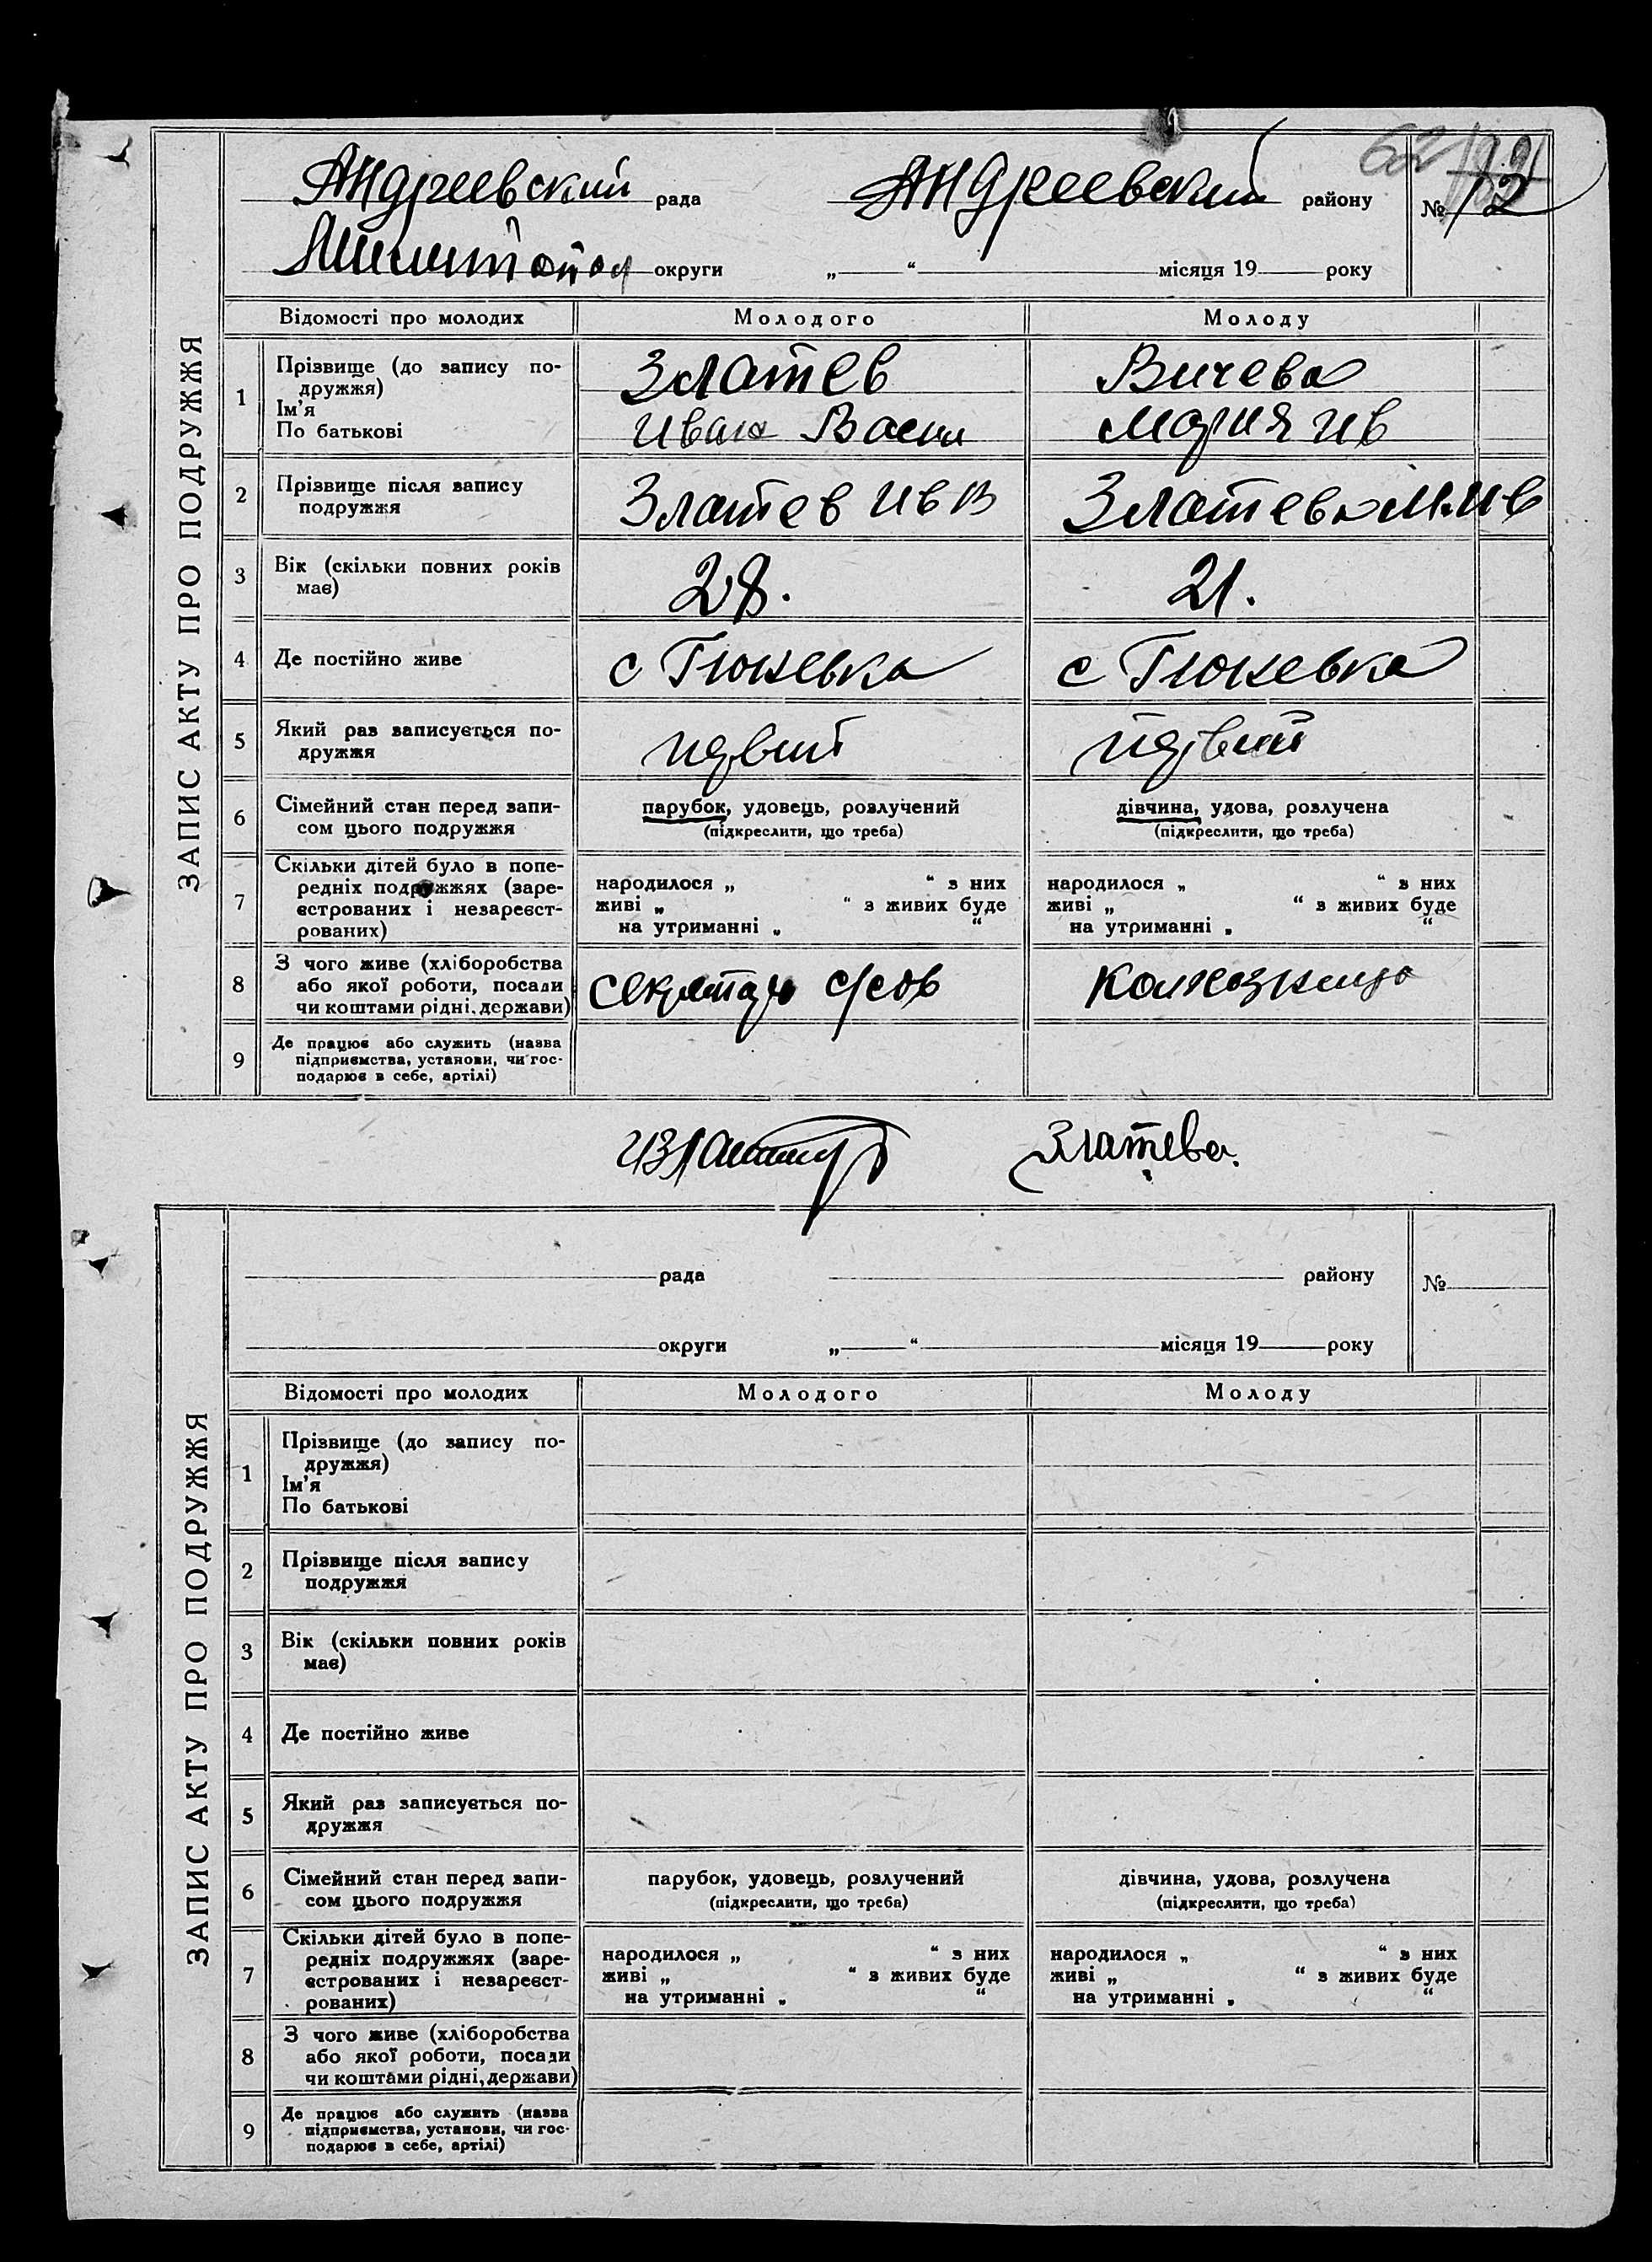 ЗАПИС АКТУ ПРО ПОДРУЖЖЯ
Андреевский рада Андреевский району № 12
округи „ “ місяця 19 року
Відомості про молодих Молодого Молоду
1 Прізвище (до запису по-
дружжя)
Ім’я
По батькові
Златев Вичева
Иван Васил Мария Ив
2 Прізвище після запису
подружжя
Златев Ив В Златева М. Ив
3 Вік (скільки повних років
має)
28. 21.
4 Де постійно живе с Гюневка с Гюневка
5 Який раз записується по-
дружжя
первий первий
6 Сімейний стан перед запи-
сом цього подружжя
парубок, удовець, розлучений дівчина, удова, розлучена
(підкреслити, що треба) (підкреслити, що треба)
7 Скільки дітей було в попе-
редніх подружжях (заре-
єстрованих і незареєст-
рованих)
народилося „ “ з них народилося „ “ з них
живі „ “ з живих буде живі „ “ з живих буде
на утриманні „ “ на утриманні „ “
8 З чого живе (хліборобства
або якої роботи, посади
чи коштами рідні, держави)
секретар с/сов колхозница
9 Де працює або служить (назва
підприємства, установи, чи гос-
подарює в себе, артілі)
Златева.
ЗАПИС АКТУ ПРО ПОДРУЖЖЯ
рада району №
округи „ “ місяця 19 року
Відомості про молодих Молодого Молоду
1 Прізвище (до запису по-
дружжя)
Ім’я
По батькові
2 Прізвище після запису
подружжя
3 Вік (скільки повних років
має)
4 Де постійно живе
5 Який раз записується по-
дружжя
6 Сімейний стан перед запи-
сом цього подружжя
парубок, удовець, розлучений дівчина, удова, розлучена
(підкреслити, що треба) (підкреслити, що треба)
7 Скільки дітей було в попе-
редніх подружжях (заре-
єстрованих і незареєст-
рованих)
народилося „ “ з них народилося „ “ з них
живі „ “ з живих буде живі „ “ з живих буде
на утриманні „ “ на утриманні „ “
8 З чого живе (хліборобства
або якої роботи, посади
чи коштами рідні, держави)
9 Де працює або служить (назва
підприємства, установи, чи гос-
подарює в себе, артілі)